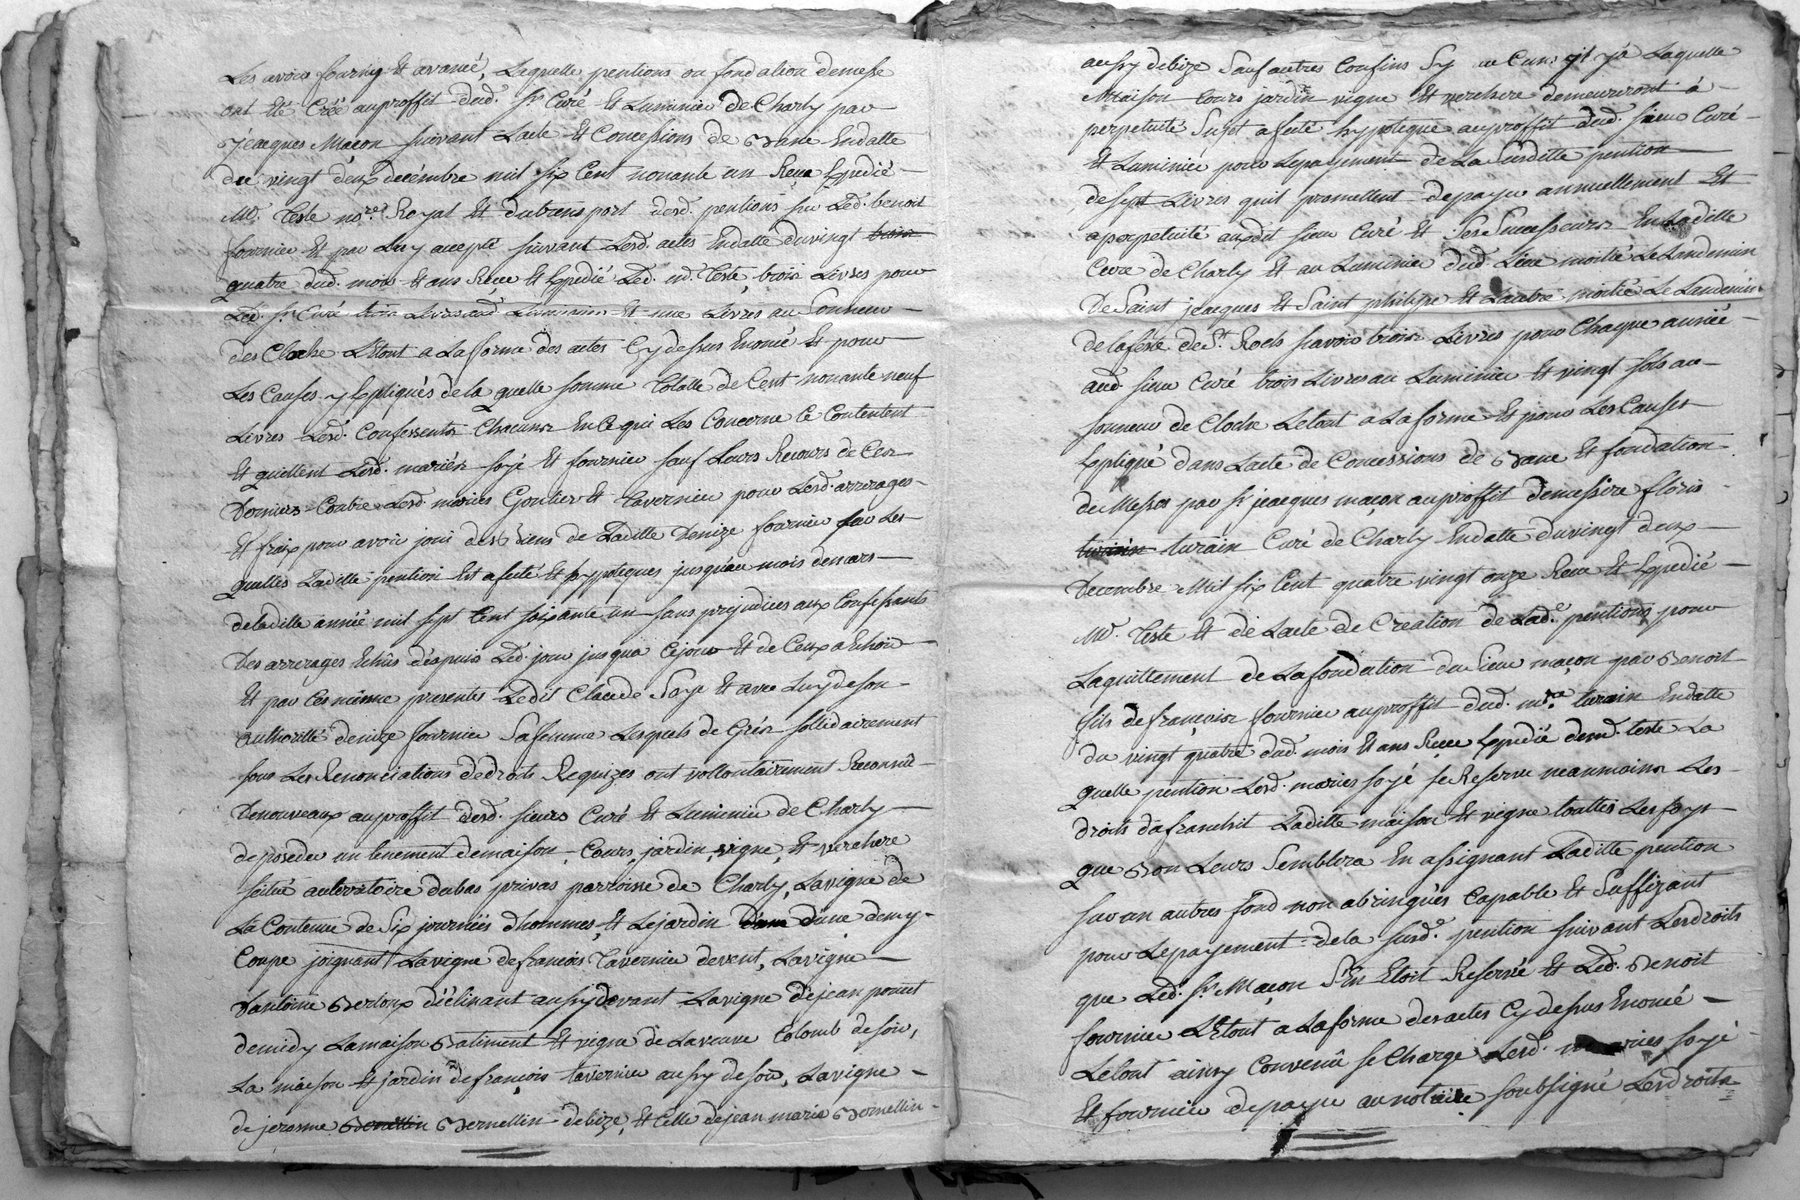 Les avoir fourny et avancé, Laquelle pentions ou fondation de messe
ont été Créé au proffit dud. Sr. Curé et Luminier de Charly par
Jeacques Macon suivant L'acte et Concessions de Banc En datte
du vingt deux decémbre mil six Cent nonante un Reçu Expedié
Me. Teste nore. Royal et du transport desd. pentions sur Led. benoit
fournier et par Luy accepté suivant Lesd. actes En datte du vingt
quatre dud. mois et ans Reçu et Expedié Led. Me. Teste, trois Livres pour
Led. Sr. Curé trois Livres aud. Luminier et une Livres au Sonneur
des Cloche Le tout a La forme des actes Cy dessus Enoncé et pour
Les Causes y Expliqués de la quelle somme Totalle de Cent nonante neuf
Livres Lesd. Confessents Chacuns En Ce qui Les Concerne Ce Contentent
et quittent Lesd. mariés Soyé et fournier sauf Leurs Recours de Ces
Derniers Contre Lesd. mariés Goutier et Tavernier pour Lesd. arrerages
et fraix pour avoir joui des Biens de Laditte Denize fournier sur Les
quelles Laditte pention Est afecté et hyppoteques jusqu'au mois de mars
de laditte année mil sept Cent soixante un sans prejudices aux Confessants
Des arrerages Echûs déspuis Led. jour jusqua Cejour et de Ceux a Echoir
Et par Ces mésme presentes Ledit Claude Soyé et avec Luy de son
authorité denize fournier Sa femme Lesquels de Grés sollidairement
sous Les Renonciations de droits Requizes ont vollontairement Reconnût
De nouveaux au proffit desd. sieurs Curé et Luminier de Charly
de posseder un tenement de maison, Cours, jardin, vigne, et verchere
scitué au territoire du bas privas parroisse de Charly, La vigne de
La Contenue de Six journées d'hommes, et Le jardin D'une d'une demy
Coupe joignant La vigne de francois Tavernier de vent, La vigne
D'antoine Berioux déclinant aussy de vant La vigne de jean ponnt
de midy La maison Batiment et vigne de La veuve Colomb de soir,
La maison et jardin de françois tavernier aussy de soir, La vigne
de jerosme Bernellin Bernellin de bize, et Celle de jean marie Bernellin
aussy de bize Sauf autres Confins Sy aucuns y Laquelle
Maison Cours jardin vigne et verchere demeureront à
perpetuité Sujet afecté hyppteque au proffit dud. sieur Curé
Et Luminier pour Le payement de La Susditte pention
de sept Livres quil promettent de payer annuellement Et
a perpetuité audit sieur Curé et Ses Successeurs En La ditte
Cure de Charly et au Luminier dud. Lieu moitié Le Landemin
De Saint jeacques et Saint philipe et L'autre moitié Le Landemin
de la feste de St. Rochs scavoir trois Livres pour Chaque année
aud. sieur Curé trois Livres au Luminier et vingt sols au
sonneur de Cloche Le tout a La forme et pour Les Causes
Expliqué dans L'acte de Concessions de Banc et fondation
de Messes par Sr. jeacques maçon au proffit de messire floris
turain turain Curé de Charly En datte du vingt deux
Decembre Mil six Cent quatre vingt onze Reçu et Expedié
Me. Teste et de L'acte de Création de Lade. pentions pour
L'aquittement de La fondation du Sieur maçon par Benoit
fils de françois fournier au proffit dud. mre. turain En datte
du vingt quatre dud. mois et ans Reçu Expedié dud. teste La
quelle pention Lesd. mariés soyé se Reserve neanmoins Les
droits d'afranchit Laditte maison et vigne touttes Les foys
que Bon Leurs Semblera En assignant Laditte pention
sur un autres fond non abringués Capable et Suffizant
pour Le payement de la susd. pention suivant Les droits
que Led. Sr. Maçon S'En Etoit Reservée et Led. Benoit
fournier Le tout a La forme des actes Cy dessus Enoncé
Le tout ainsy Convenû se Charge Lesd. mariés soyé
Et fournier de payer au notaire soubsigné Les droits